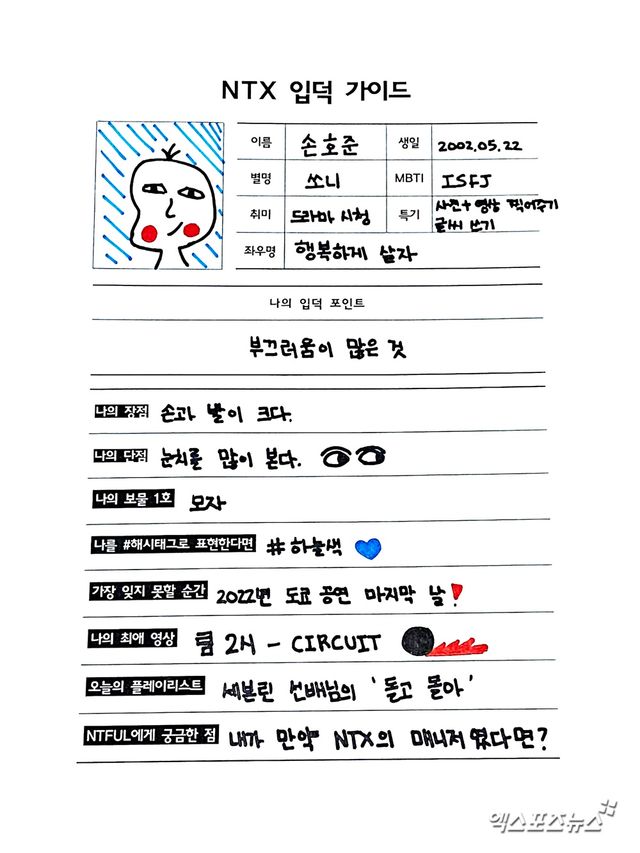 NTX 입덕 가이드
이름 손호준 생일 2002.05.22
별명 쏘니 MBTI ISFJ
취미 드라마 시청 특기 사진+영상 찍어주기
글씨 쓰기
좌우명 행복하게 살자
나의 입덕 포인트
부끄러움이 많은 것
나의 장점 손과 발이 크다.
나의 단점 눈치를 많이 본다.
나의 보물 1호 모자
나를 #해시태그로 표현한다면 #하늘색
가장 잊지 못할 순간 2022년 도쿄 공연 마지막 날!
나의 최애 영상 팀 2시 - CIRCUIT
오늘의 플레이리스트 세븐틴 선배님의 '돌고 돌아'
NTFUL에게 궁금한 점 내가 만약 NTX의 매니저였다면?
엑스포츠뉴스